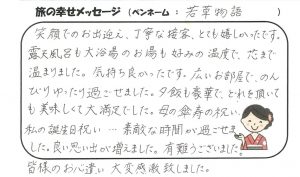 旅の幸せメッセージ（ペンネーム：若草物語）
笑顔でのお出迎え、丁寧な接客、とても嬉しかったです。
露天風呂も大浴場のお湯も好みの温度で、芯まで
温まりました。気持ち良かったです。広いお部屋で、のん
びりゆったり過ごせました。夕飯も豪華で、どれを頂いて
も美味しくて大満足でした。母の傘寿の祝い
私の誕生日祝い…素敵な時間が過ごせま
した。良い思い出が増えました。有難うございました。
皆様のお心遣い大変感激致しました。